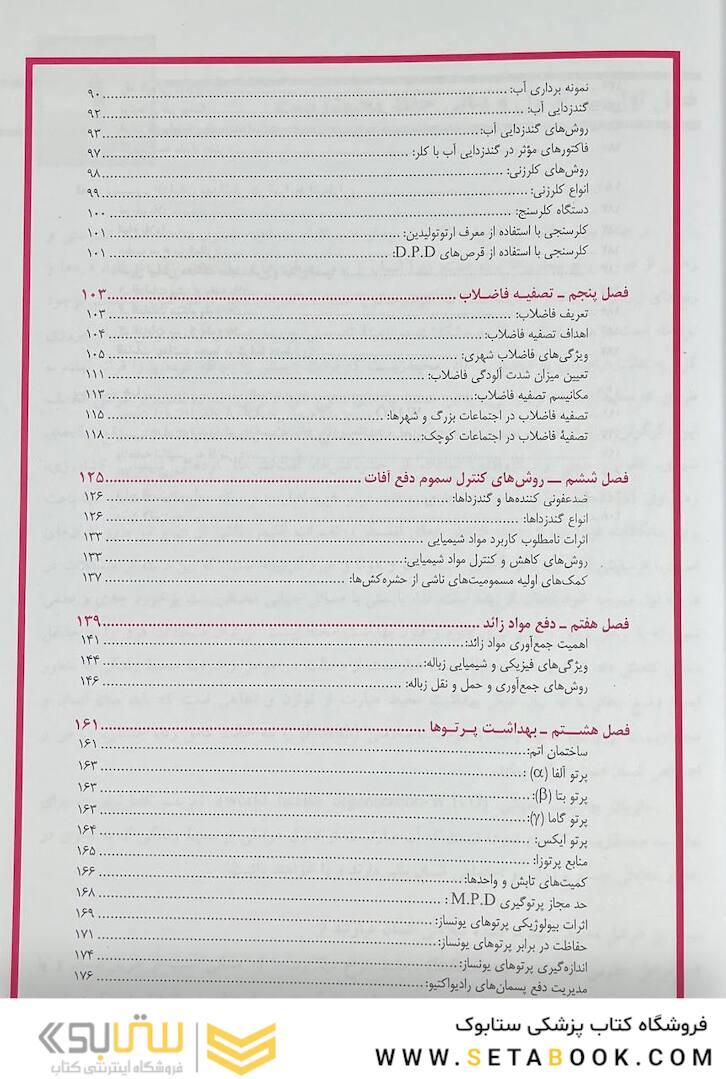 نمونه برداری آب: ۹۰
گندزدایی آب: ۹۲
روش‌های گندزدایی آب: ۹۳
فاکتورهای مؤثر در گندزدایی آب با کلر: ۹۷
روش‌های کلرزنی: ۹۸
انواع کلرزنی: ۹۹
دستگاه کلرسنج: ۱۰۰
کلرسنجی با استفاده از معرف ارتوتولیدین: ۱۰۱
کلرسنجی با استفاده از قرص‌های D.P.D: ۱۰۱
فصل پنجم ـ تصفیه فاضلاب ۱۰۳
تعریف فاضلاب: ۱۰۳
اهداف تصفیه فاضلاب: ۱۰۴
ویژگی‌های فاضلاب شهری: ۱۰۵
تعیین میزان شدت آلودگی فاضلاب: ۱۱۱
مکانیسم تصفیه فاضلاب: ۱۱۳
تصفیه فاضلاب در اجتماعات بزرگ و شهرها: ۱۱۵
تصفیهٔ فاضلاب در اجتماعات کوچک: ۱۱۸
فصل ششم ــ روش‌های کنترل سموم دفع آفات ۱۲۵
ضدعفونی کننده‌ها و گندزداها: ۱۲۶
انواع گندزداها: ۱۲۶
اثرات نامطلوب کاربرد مواد شیمیایی ۱۳۳
روش‌های کاهش و کنترل مواد شیمیایی: ۱۳۳
کمک‌های اولیه مسمومیت‌های ناشی از حشره‌کش‌ها: ۱۳۷
فصل هفتم ـ دفع مواد زائد ۱۳۹
اهمیت جمع‌آوری مواد زائد: ۱۴۱
ویژگی‌های فیزیکی و شیمیایی زباله: ۱۴۴
روش‌های جمع‌آوری و حمل و نقل زباله: ۱۴۶
فصل هشتم ـ بهداشت پرتوها ۱۶۱
ساختمان اتم: ۱۶۱
پرتو آلفا (α) : ۱۶۳
پرتو بتا (β): ۱۶۳
پرتو گاما (γ): ۱۶۳
پرتو ایکس: ۱۶۴
منابع پرتوزا: ۱۶۵
کمیت‌های تابش و واحدها: ۱۶۶
حد مجاز پرتوگیری M.P.D : ۱۶۸
اثرات بیولوژیکی پرتوهای یونساز: ۱۶۹
حفاظت در برابر پرتوهای یونساز: ۱۷۱
اندازه‌گیری پرتوهای یونساز: ۱۷۴
مدیریت دفع پسمان‌های رادیواکتیو: ۱۷۶
فروشگاه کتاب پزشکی ستابوک
WWW.SETABOOK.COM
ستابوک
فروشگاه اینترنتی کتاب